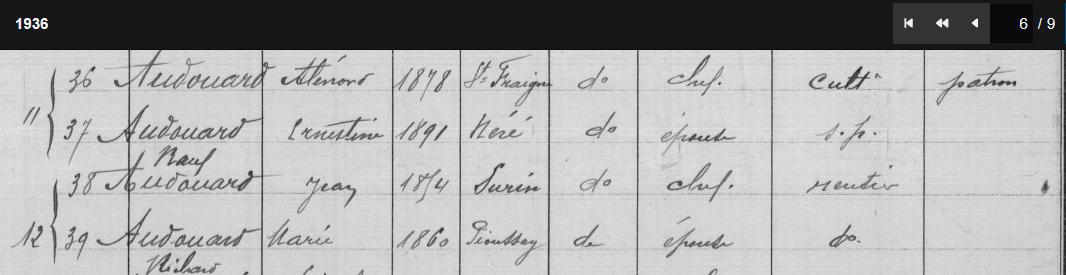 1936
6 / 9
36 Audouard Alénord 1878 St Fraigne do chef. cultr patron
11
37 Audouard Ernestine 1891 Néré do épouse s.p.
Raul
38 Audouard Jean 1854 Surin do chef. rentier
12 39 Audouard Marie 1860 Pioussay do épouse do.
Richard